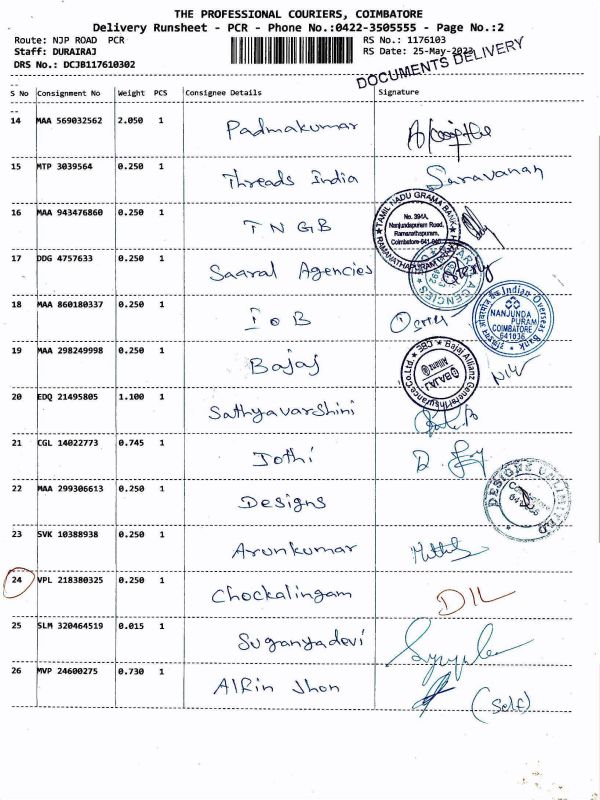 THE PROFESSIONAL COURIERS, COIMBATORE
Delivery Runsheet - PCR - Phone No.:0422-3505555 - Page No.:2
Route: NJP ROAD PCR RS No.: 1176103
Staff: DURAIRAJ RS Date: 25-May-2023
DRS No.: DCJB117610302
DOCUMENTS DELIVERY
S No Consignment No Weight PCS Consignee Details Signature
14 MAA 569032562 2.050 1 Padmakumar
15 MTP 3039564 0.250 1 Threads India Saravanan
16 MAA 943476860 0.250 1 TNGB
TAMIL NADU GRAMA BANK
No. 394A,
Nanjundapuram Road,
Ramanathapuram,
Coimbatore-641 045
17 DDG 4757633 0.250 1 Saaral Agencies
18 MAA 860180337 0.250 1 IOB
Indian Overseas Bank
NANJUNDA
PURAM
COIMBATORE
641036
19 MAA 298249998 0.250 1 Bajaj
Bajaj Allianz General Insurance Co. Ltd. ★ CBE ★
BAJAJ
Allianz
20 EDQ 21495805 1.100 1 Sathyavarshini
21 CGL 14022773 0.745 1 Jothi
22 MAA 299306613 0.250 1 Designs
DESIGNS UNLIMITED
23 SVK 10388938 0.250 1 Arunkumar
24 VPL 218380325 0.250 1 Chockalingam DIL
25 SLM 320464519 0.015 1 Suganyadevi
26 MVP 24600275 0.730 1 Alrin Jhon (Self)